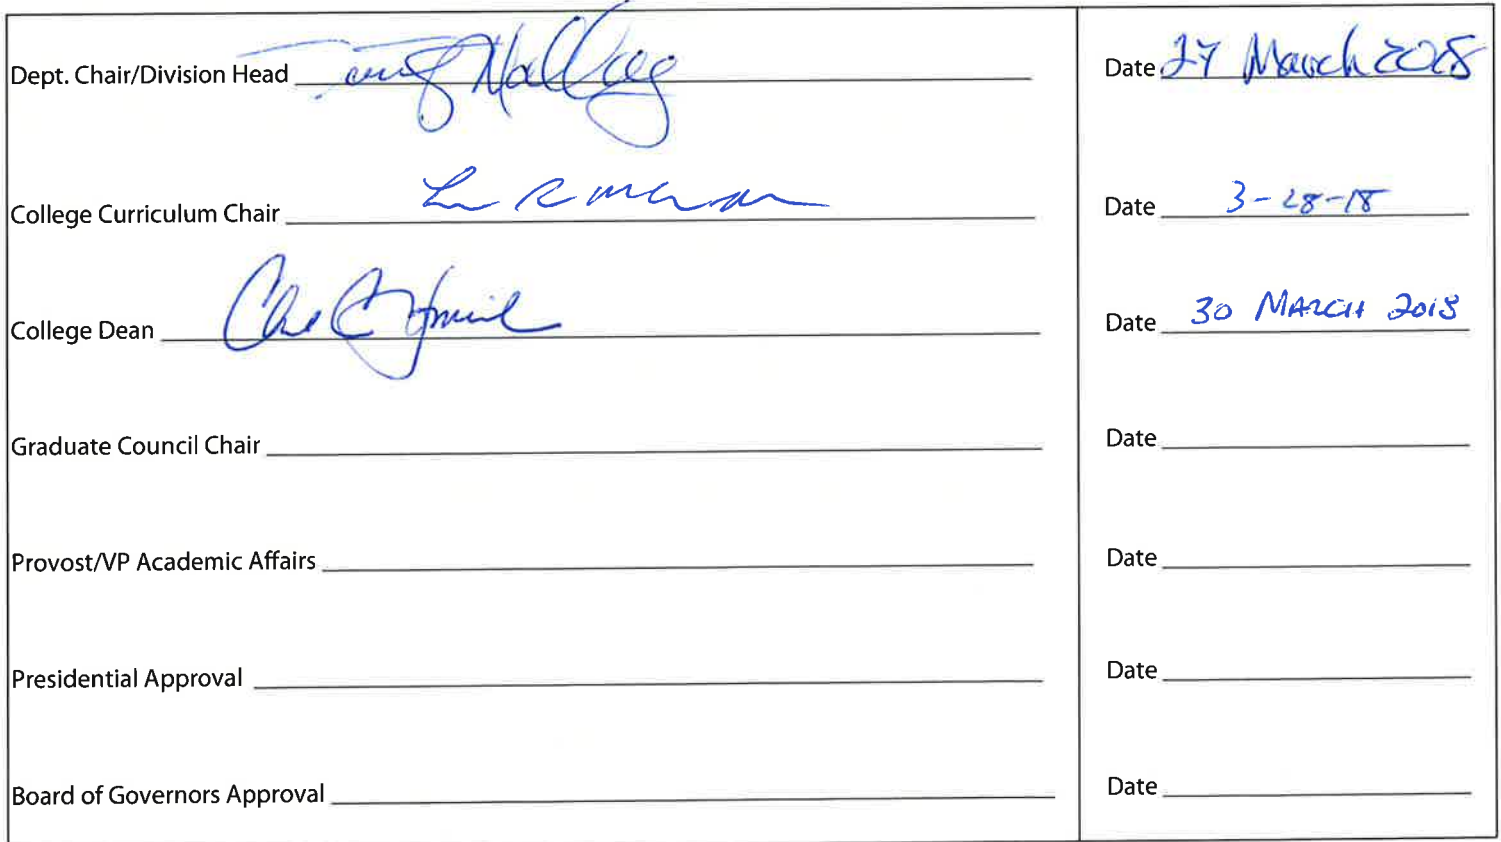 Dept. Chair/Division Head Date 27 March 2018
College Curriculum Chair Date 3-28-18
College Dean Date 30 MARCH 2018
Graduate Council Chair Date
Provost/VP Academic Affairs Date
Presidential Approval Date
Board of Governors Approval Date